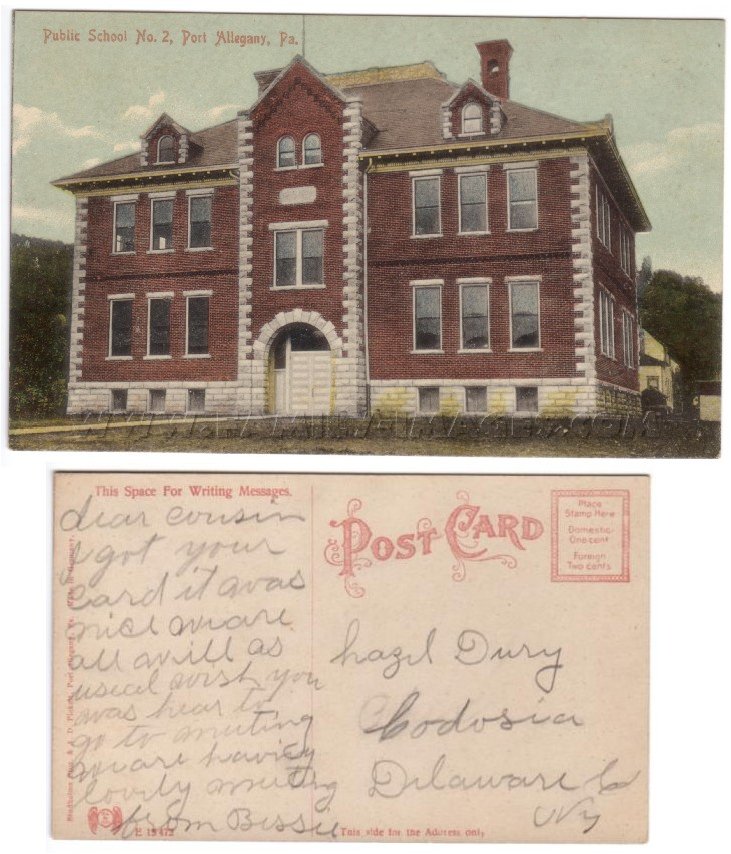 Public School No. 2, Port Allegany, Pa.
This Space For Writing Messages.
dear cousin
i got your
card it was
nice we are
all will as
usual wish you
was hear to
go to meeting
we are having
lovely meeting
from Bessie
E 15472
POST CARD
Place
Stamp Here
Domestic
One cent
Foreign
Two cents
hazel Dury
Codosia
Delaware Co
NY
This side for the Address only.